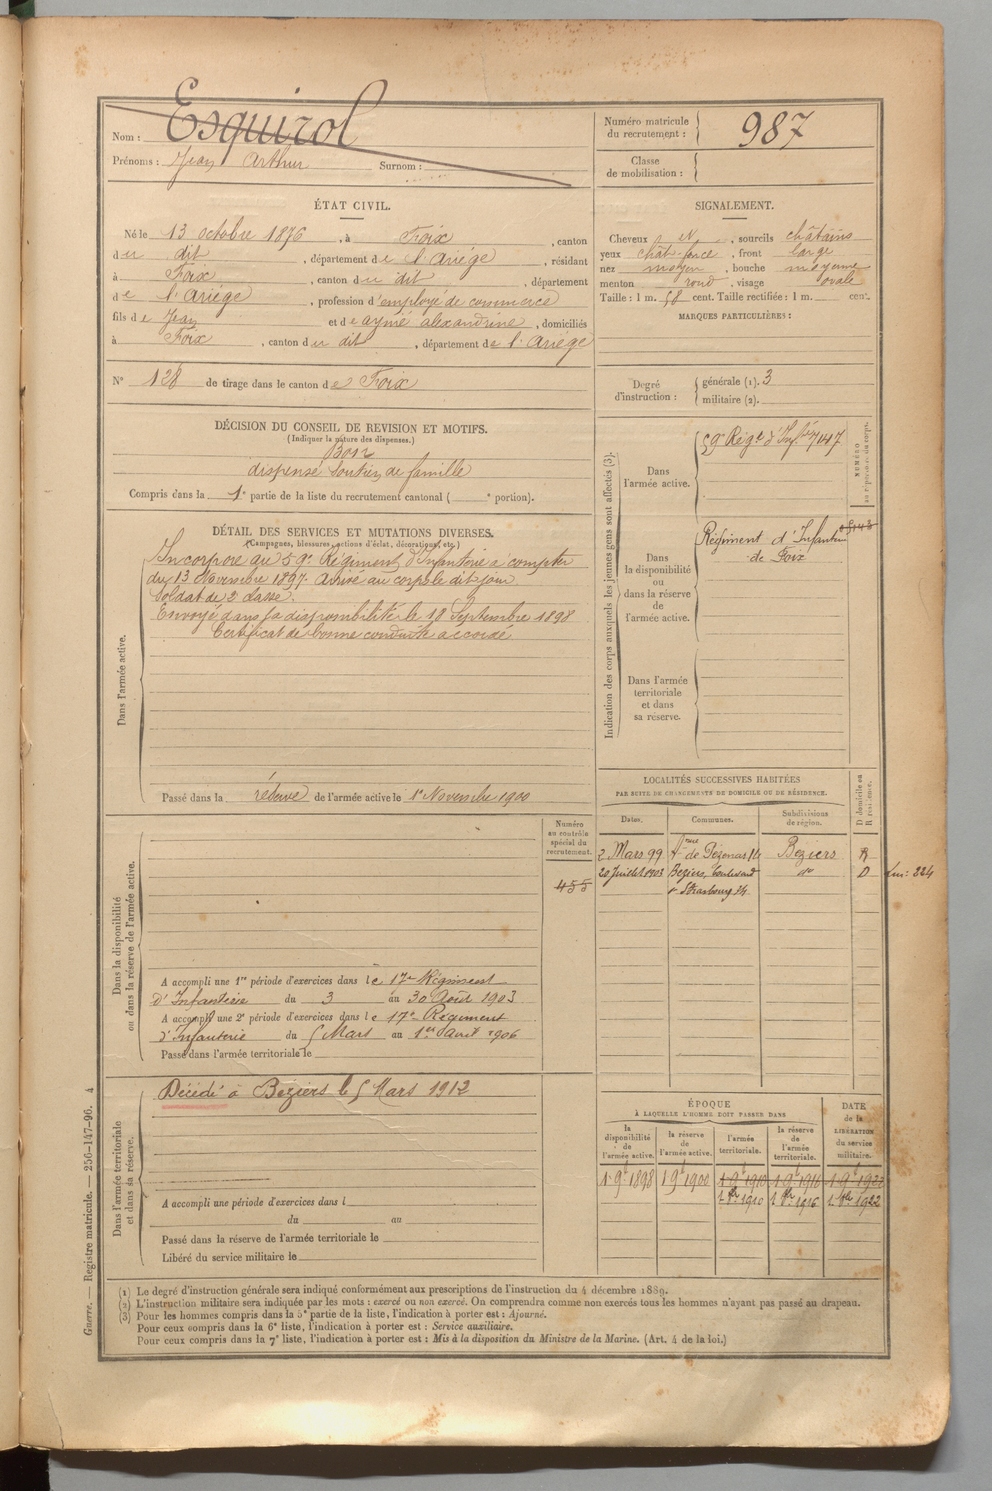 Nom : Esquirol
Prénoms : Jean Arthur Surnom :
Numéro matricule du recrutement : 987
Classe de mobilisation :
ÉTAT CIVIL.
Né le 13 octobre 1876, à Foix, canton
du dit, département de l'Ariége, résidant
à Foix, canton du dit, département
de l'Ariége, profession d'employé de commerce
fils de Jean et de aymé alexandrine, domiciliés
à Foix, canton du dit, département de l'Ariége
N° 128 de tirage dans le canton de Foix
SIGNALEMENT.
Cheveux N, sourcils châtains
yeux chât. foncé, front large
nez moyen, bouche moyenne
menton rond, visage ovale
Taille : 1 m. 58 cent. Taille rectifiée : 1 m. cent.
MARQUES PARTICULIÈRES :
Degré d'instruction : générale (1). 3
militaire (2).
DÉCISION DU CONSEIL DE REVISION ET MOTIFS.
(Indiquer la nature des dispenses.)
Bon
dispensé soutien de famille
Compris dans la 1e partie de la liste du recrutement cantonal ( e portion).
DÉTAIL DES SERVICES ET MUTATIONS DIVERSES.
(Campagnes, blessures, actions d'éclat, décorations, etc.)
Dans l'armée active.
Incorporé au 59e Régiment d'Infanterie à compter
du 13 Novembre 1897. Arrivé au corps le dit jour
Soldat de 2e classe.
Envoyé dans la disponibilité le 18 Septembre 1898
Certificat de bonne conduite accordé
Passé dans la réserve de l'armée active le 1er Novembre 1900
Indication des corps auxquels les jeunes gens sont affectés (3).
NUMÉRO au répertoire du corps.
Dans l'armée active.
59e Régt d'Infie 7147
Dans la disponibilité ou dans la réserve de l'armée active.
Régiment d'Infanterie
de Foix
Dans l'armée territoriale et dans sa réserve.
LOCALITÉS SUCCESSIVES HABITÉES
PAR SUITE DE CHANGEMENTS DE DOMICILE OU DE RÉSIDENCE.
Dates. Communes. Subdivisions de région. D domicile ou R résidence.
2 Mars 99 de Pézenas 14 Beziers R
20 Juillet 1903 Beziers, boulevard do D
Strasbourg 34
Dans la disponibilité ou dans la réserve de l'armée active.
Numéro au contrôle spécial du recrutement.
455
A accompli une 1re période d'exercices dans le 17e Régiment
d'Infanterie du 3 au 30 Août 1903
A accompli une 2e période d'exercices dans le 17e Régiment
d'Infanterie du 5 Mars au 1er Avril 1906
Passé dans l'armée territoriale le
Dans l'armée territoriale et dans sa réserve.
Décédé à Beziers le 5 Mars 1912
A accompli une période d'exercices dans l
du au
Passé dans la réserve de l'armée territoriale le
Libéré du service militaire le
ÉPOQUE
À LAQUELLE L'HOMME DOIT PASSER DANS
DATE de la LIBÉRATION du service militaire.
la disponibilité de l'armée active. la réserve de l'armée active. l'armée territoriale. la réserve de l'armée territoriale.
1 9bre 1898 1 9bre 1900 1 9bre 1910 1 9bre 1916 1 9bre 1922
1. 8bre 1910 1. 8bre 1916 1. 8bre 1922
(1) Le degré d'instruction générale sera indiqué conformément aux prescriptions de l'instruction du 4 décembre 1889.
(2) L'instruction militaire sera indiquée par les mots : exercé ou non exercé. On comprendra comme non exercés tous les hommes n'ayant pas passé au drapeau.
(3) Pour les hommes compris dans la 5e partie de la liste, l'indication à porter est : Ajourné.
Pour ceux compris dans la 6e liste, l'indication à porter est : Service auxiliaire.
Pour ceux compris dans la 7e liste, l'indication à porter est : Mis à la disposition du Ministre de la Marine. (Art. 4 de la loi.)
Guerre. — Registre matricule. — 256-147-96. 4